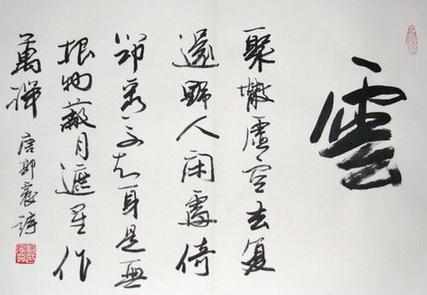 雲
聚散虛空去复
還野人闲處倚
筇看不知身是無
根物蔽月遮星作
萬端
唐郭震詩